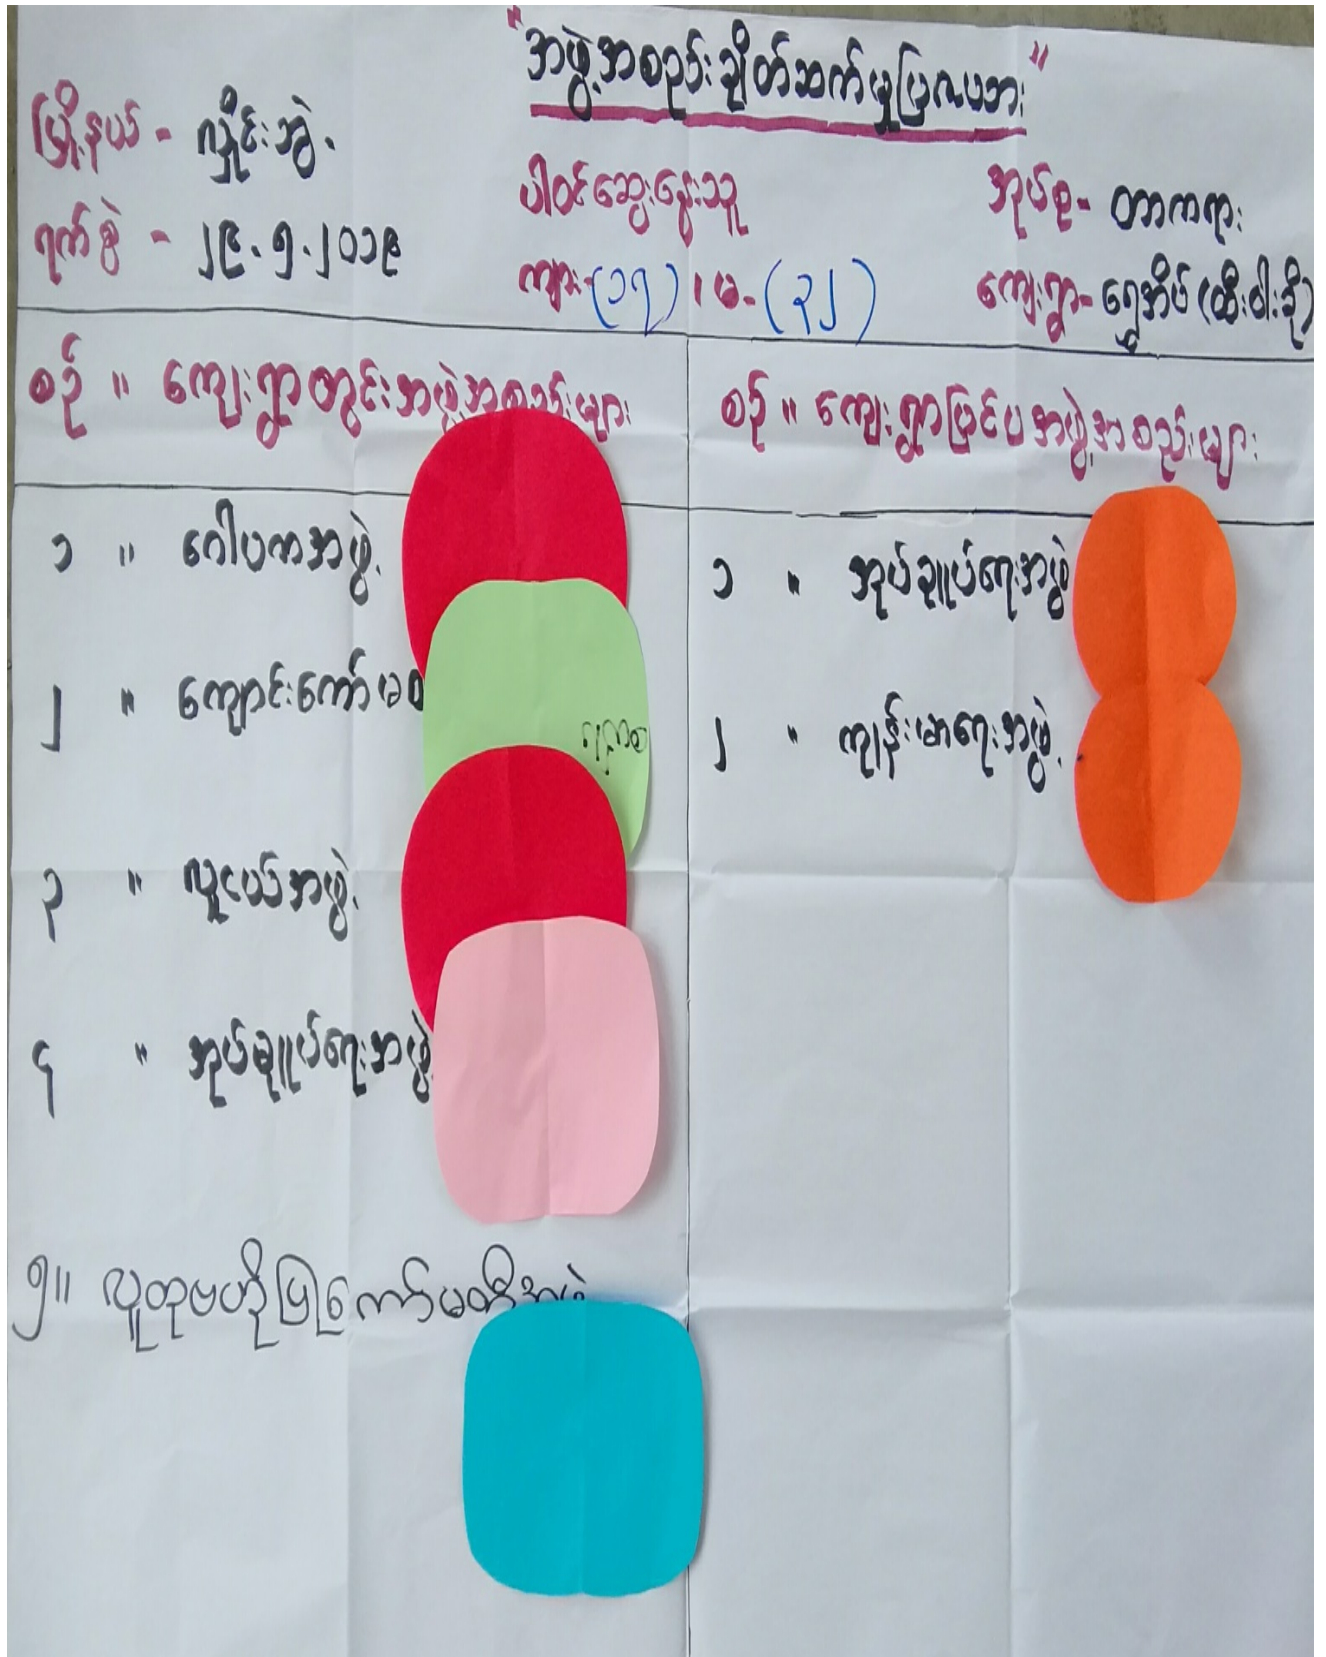 "အဖွဲ့အစည်းချိတ်ဆက်မှုပြဇယား"
မြို့နယ် - လှိုင်းဘွဲ့
ရက်စွဲ - ၂၉.၅.၂၀၁၉
ပါဝင်ဆွေးနွေးသူ
ကျား-(၁၇)၊ မ-(၃၂)
အုပ်စု- တာကရား
ကျေးရွာ- ရွှေအိပ် (ထီးဝါးခို)
စဉ် ။ ကျေးရွာတွင်းအဖွဲ့အစည်းများ
၁ ။ ဂေါပကအဖွဲ့
၂ ။ ကျောင်းကော်မတ
ရက္ခစ
၃ ။ လူငယ်အဖွဲ့
၄ ။ အုပ်ချုပ်ရေးအဖွဲ့
၅။ လူတုဗဟိုပြုကော်မတီအဖွဲ့
စဉ် ။ ကျေးရွာပြင်ပအဖွဲ့အစည်းများ
၁ ။ အုပ်ချုပ်ရေးအဖွဲ့
၂ ။ ကျန်းမာရေးအဖွဲ့